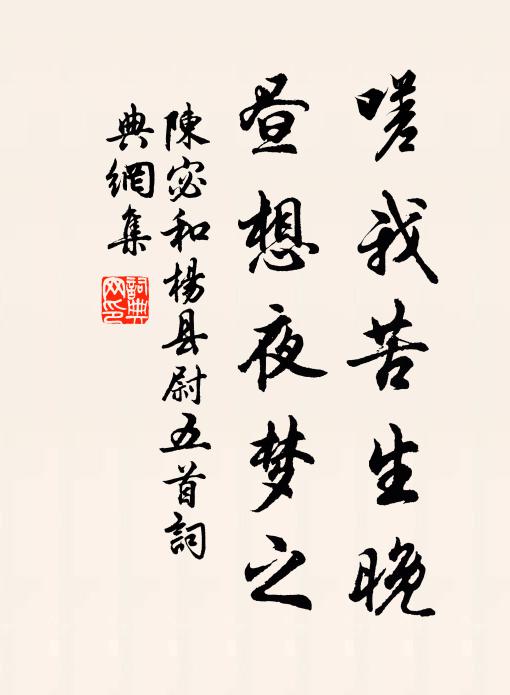 嗟我苦生晚
昼想夜梦之
陳宓和楊县尉五首詞
典網集
詞典
网印